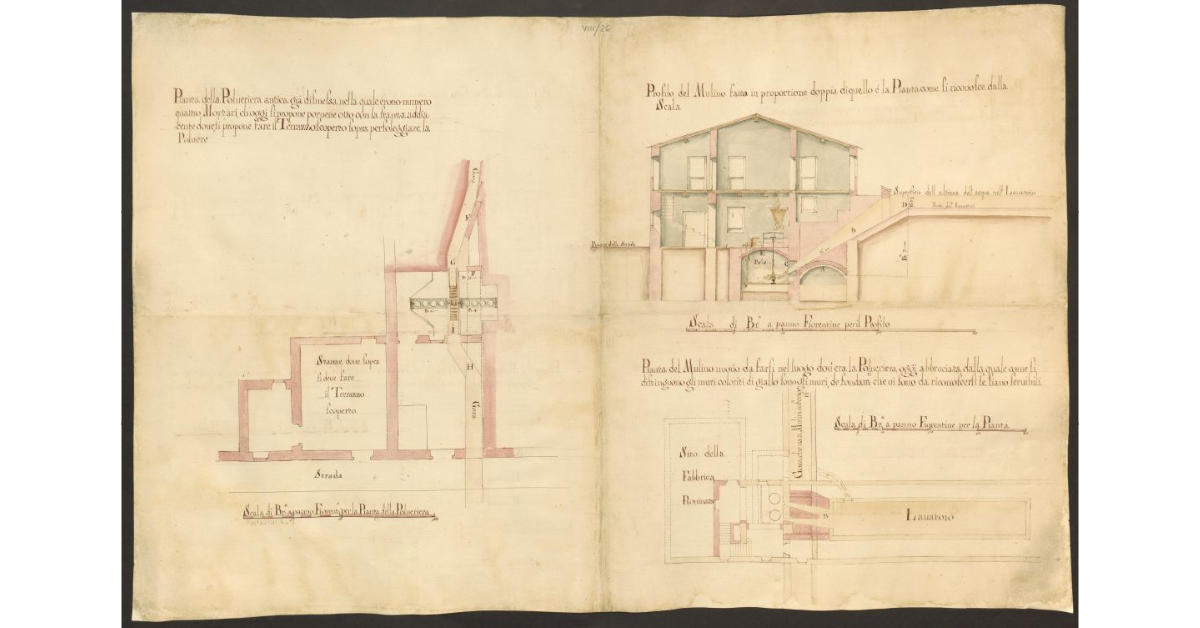 VIII/26
Pianta della Polueriera antica, già dismessa, nella quale erono numero
quatro Mortari, ch'oggi si propone porvene otto con la
dove si propone fare il Terrazzo scoperto sopra per soleggiare la
Poluere
Gora
F
G
H
Gora
Stanze dove sopra
si deve fare
il Terrazzo
scoperto
Strada
Scala di Br.ª a panno Fiorent.ᵉ per la Pianta della Polueriera
Profilo del Mulino fatta in proportione doppia di quello è la Pianta come si riconosce dalla
Scala
Superficie dell altezza dell acqua nell Lauatoio
D
Piano della strada
E
C
B
A
Scala di Br.ª a panno Fiorentine per il Profilo
Pianta del Mulino nuouo da farsi nel luogo dou'era la Polueriera oggi abbruciata dalla quale come si
distingono gli muri coloriti di giallo sono gli muri de fondam che vi sono da riconoscersi se siano seruibili
Scala di Br.ª a panno Fiorentine per la Pianta
Sito della
Fabbrica
Rouinata
B
Lauatoio